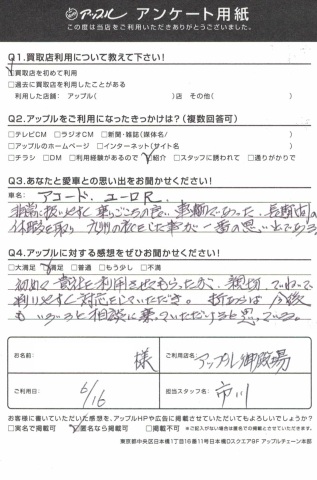 アップル アンケート用紙
この度は当店をご利用いただきありがとうございました。
Q1.買取店利用について教えて下さい!
☑買取店を初めて利用
□過去に買取店を利用したことがある
利用した店舗: アップル( )店 その他( )
Q2.アップルをご利用になったきっかけは?(複数回答可)
□テレビCM □ラジオCM □新聞・雑誌(媒体名/ )
□アップルのホームページ □インターネット(サイト名 )
□チラシ □DM □利用経験があるので ☑紹介 □スタッフに誘われて □通りがかりで
Q3.あなたと愛車との思い出をお聞かせください!
車名: アコード、ユーロR.
非常に扱いやすく乗りごこちの良い車輌であった、長期間の
休暇を取り 九州の旅をした事が一番の思い出である
Q4.アップルに対する感想をぜひお聞かせください!
□大満足 ☑満足 □普通 □もう少し □不満
初めて貴社を利用させてもらったが、親切、ていねいで
判りやすく対応をしていただき。 今後
も いろいろと相談に乗っていただけると思っている。
お名前: 様
ご利用店名: アップル御殿場
ご利用日: 6/16
担当スタッフ名: 市川
お客様に書いていただいた感想を、アップルHPや広告に掲載させていただいてもよろしいでしょうか?
□実名で掲載可 ☑匿名なら掲載可 □掲載不可 ※ご記入がない場合は匿名での掲載とさせていただきます。
東京都中央区日本橋1丁目16番11号日本橋Dスクエア9F アップルチェーン本部